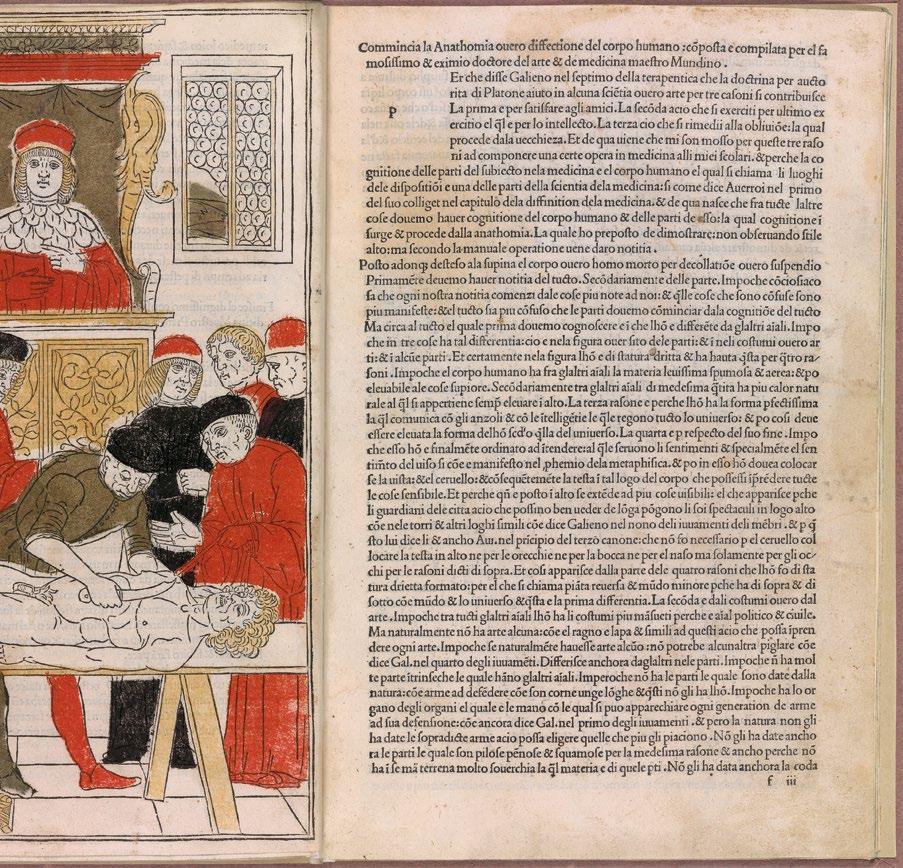 Commincia la Anathomia ouero dissectione del corpo humano :cōposta e compilata per el fa
mosissimo & eximio doctore del arte & de medicina maestro Mundino .
Er che disse Galieno nel septimo della terapentica che la doctrina per aucto
rita di Platone aiuto in alcuna sciētia ouero arte per tre casoni si contribuisce
p
La prima e per satisfare agli amici. La secōda acio che si exerciti per ultimo ex
ercitio el q̄l e per lo intellecto. La terza cio che si rimedii alla obliuiōe: la qual
procede dala uecchieza. Et de qua uiene che mi son mosso per queste tre raso
ni ad componere una certe opera in medicina alli miei scolari. &perche la co
gnitione delle parti del subiecto nela medicina e el corpo humano el qual si chiama li luoghi
dele dispositiōi e una delle parti della scientia dela medicina: si come dice Auerroi nel primo
del suo colliget nel capitulo dela diffinition dela medicina. & de qua nasce che fra tucte laltre
cose douemo hauer cognitione del corpo humano & delle parti de esso: la qual cognitione ī
surge & procede dalla anathomia. La quale ho preposto de dimostrare: non obseruando stile
alto: ma secondo la manuale operatione uene daro notitia .
Posto adonq̄ desteso ala supina el corpo ouero homo morto per decollatiōe ouero suspendio
Primamēte deuemo hauer notitia del tucto. Secōdariamente delle parte. Impoche cōciosiaco
sa che ogni nostra notitia comenzi dale cose piu note ad noi: & q̄lle cose che sono cōfuse sono
piu manifeste: &el tucto sia piu cōfuso che le parti douemo cōminciar dala cognitiōe del tucto
Ma circa al tucto el quale prima douemo cognoscere eī che lhō e differēte da glaltri aīali. Impo
che in tre cose ha tal differentia: cio e nela figura ouer sito dele parti: & i neli costumi ouero ar
ti: & ī alcūe parti . Et certamente nela figura lhō e di statura dritta & ha hauta q̄sta per q̄tro ra-
soni . Impoche el corpo humano ha fra glaltri aīali la materia leuissima spumosa & aerea: &po
eleuabile ale cose supiore. Secōdariamente tra glaltri aīali di medesima q̄tita ha piu calor natu
rale al q̄l si appertiene semp̄ eleuare i alto. La terza rasone e perche lhō ha la forma pfectissima
la q̄l comunica cō gli anzoli & cō le ītelligētie le q̄le regono tucto lo uniuerso: & po cosi deue
essere eleuata la forma delhō secd̄o q̄lla del uniuerso. La quarta e p respecto del suo fine . Impo
che esso hō e finalmēte ordinato ad ītendere: al q̄le seruono li sentimenti & specialmēte el sen
timēto del uiso si cōe e manifesto nel phemio dela metaphisica. & po in esso hō douea colocar
se la uista: &el ceruello: &cōseq̄uētemēte la testa ī tal logo del corpo che possessi īprēdere tucte
le cose sensibile. Et perche q̄n e posto ī alto se extēde ad piu cose uisibili: el che apparisce pche
li guardiani dele citta acio che possino ben ueder de lōga pōgono li soi spectaculi in logo alto
cōe nele torri & altri loghi simili cōe dice Galieno nel nono deli iuuamenti deli mēbri . & p q̄
sto lui dice li & ancho Auu. nel prīcipio del terzo canone: che nō fo necessario p el ceruello col
locare la testa in alto ne per le orecchie ne per la bocca ne per el naso ma solamente per gli oc-
chi per le rasoni dicti di sopra. Et cosi apparisce dalla parte dele quatro rasoni che lhō fo di sta
tura drietta formato: per el che si chiama piāta reuersa & mūdo minore pche ha di sopra & di
sotto cōe mūdo & lo uniuerso &q̄sta e la prima differentia. La secōda e dali costumi ouero dal
arte . Impoche tra tucti glaltri aīali lhō ha li costumi piu māsueti perche e aīal politico & ciuile.
Ma naturalmente nō ha arte alcuna: cōe el ragno e lapa & simili ad questi acio che possa īpren
dere ogni arte. Impoche se naturalmēte hauesse arte alcūo : nō potrebe alcunaltra piglare cōe
dice Gal. nel quarto degli iuuamēti. Differisce anchora daglaltri nele parti . Impoche n̄ ha mol
te parte ītrinseche le quale hāno glaltri aīali. Imperoche nō ha le parti le quale sono date dalla
natura: cōe arme ad defēdere cōe son corne unge lōghe &q̄sti nō gli ha lhō. Impoche ha lo or
gano degli organi el quale e le mano cō le qual si puo apparechiare ogni generation de arme
ad sua defensione: cōe ancora dice Gal. nel primo degli iuuamenti . & pero la natura non gli
ha date le sopradicte arme acio possa eligere quelle che piu gli piaciono . Nō gli ha date ancho
ra le parti le quale son pilose pēnose & squamose per la medesima rasone & ancho perche nō
ha ī se mā terrena molto souerchia la q̄l materia e di quele pti . Nō gli ha data anchora la coda
f iii